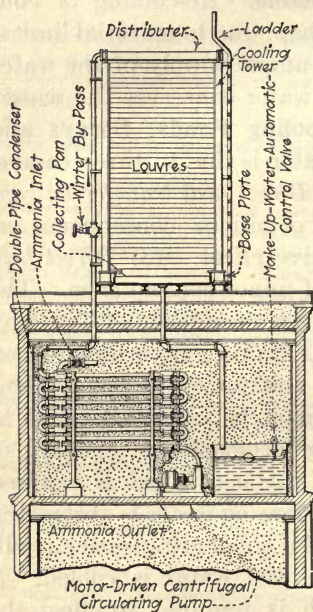 Distributer
Ladder
Cooling
Tower
Louvres
Double-Pipe Condenser
Ammonia Inlet
Collecting Pan
Winter By-Pass
Base Plate
Make-Up-Water-Automatic-
Control Valve
Ammonia Outlet
Motor-Driven Centrifugal
Circulating Pump